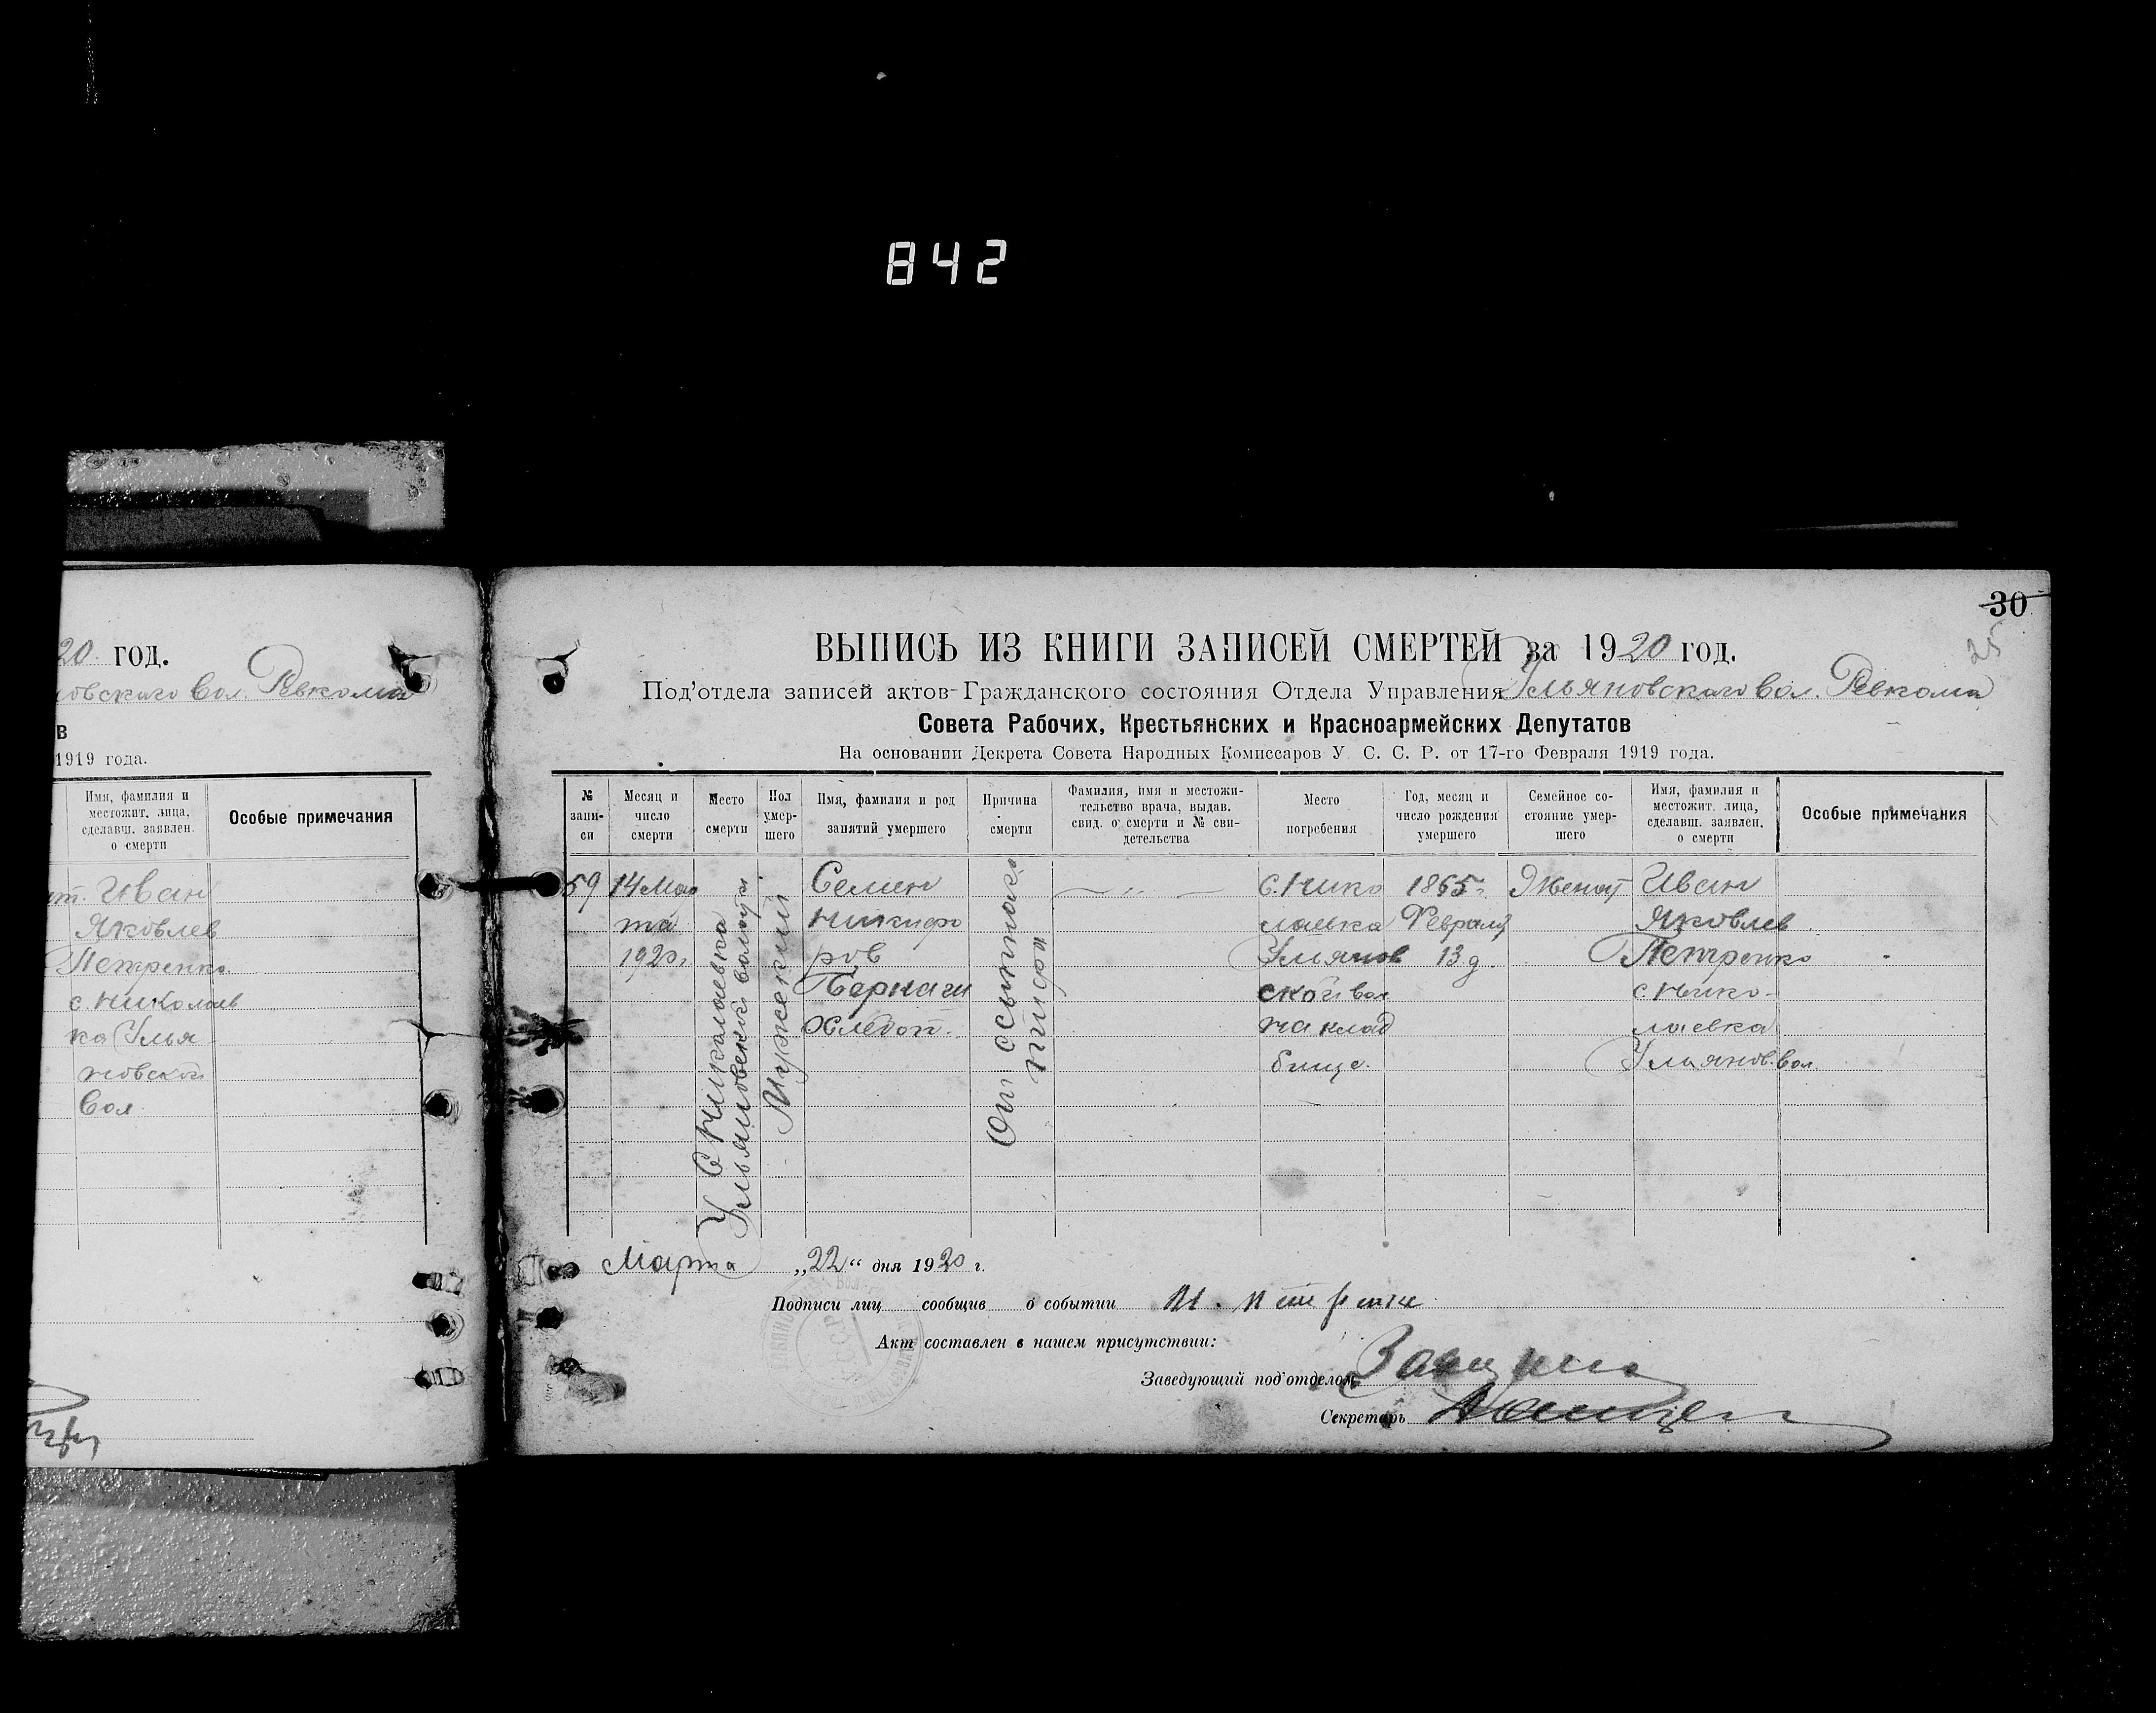 842
20 год.
новского Вол. Ревкома
в
1919 года.
Имя, фамилия и
местожит. лица,
сделавш. заявлен.
о смерти
Особые примечания
Иван
Яковлев
Петренко
с. Николаев
ка Улья
новской
Вол.
30
25
ВЫПИСЬ ИЗ КНИГИ ЗАПИСЕЙ СМЕРТЕЙ за 1920 год.
Под'отдела записей актов Гражданского состояния Отдела Управления Ульяновского Вол. Ревкома
Совета Рабочих, Крестьянских и Красноармейских Депутатов
На основании Декрета Совета Народных Комиссаров У. С. С. Р. от 17-го Февраля 1919 года.
№
запи-
си
Месяц и
число
смерти
Место
смерти
Пол
умер-
шего
Имя, фамилия и род
занятий умершего
Причина
смерти
Фамилия, имя и местожи-
тельство врача, выдав.
свид. о смерти и № сви-
детельства
Место
погребения
Год, месяц и
число рождения
умершего
Семейное со-
стояние умер-
шего
Имя, фамилия и
местожит. лица,
сделавш. заявлен.
о смерти
Особые примечания
59
14 Мар
та
1920г
У С Николаевка
Ульяновской волости
Мужеский
Семен
Никифо
ров
Хлебоп.
От сыпного
тифа
с. Нико
лаевка
Ульянов
ской вол
на клад
бище.
1865г.
Февраля
13 д.
Женат
Иван
Яковлев
Петренко
с. Нико-
лаевка
Ульянов. вол.
Марта „22“ дня 1920 г.
Подписи лиц сообщив о событии И. Петренко
Акт составлен в нашем присутствии:
Заведующий под'отделом
Секретарь